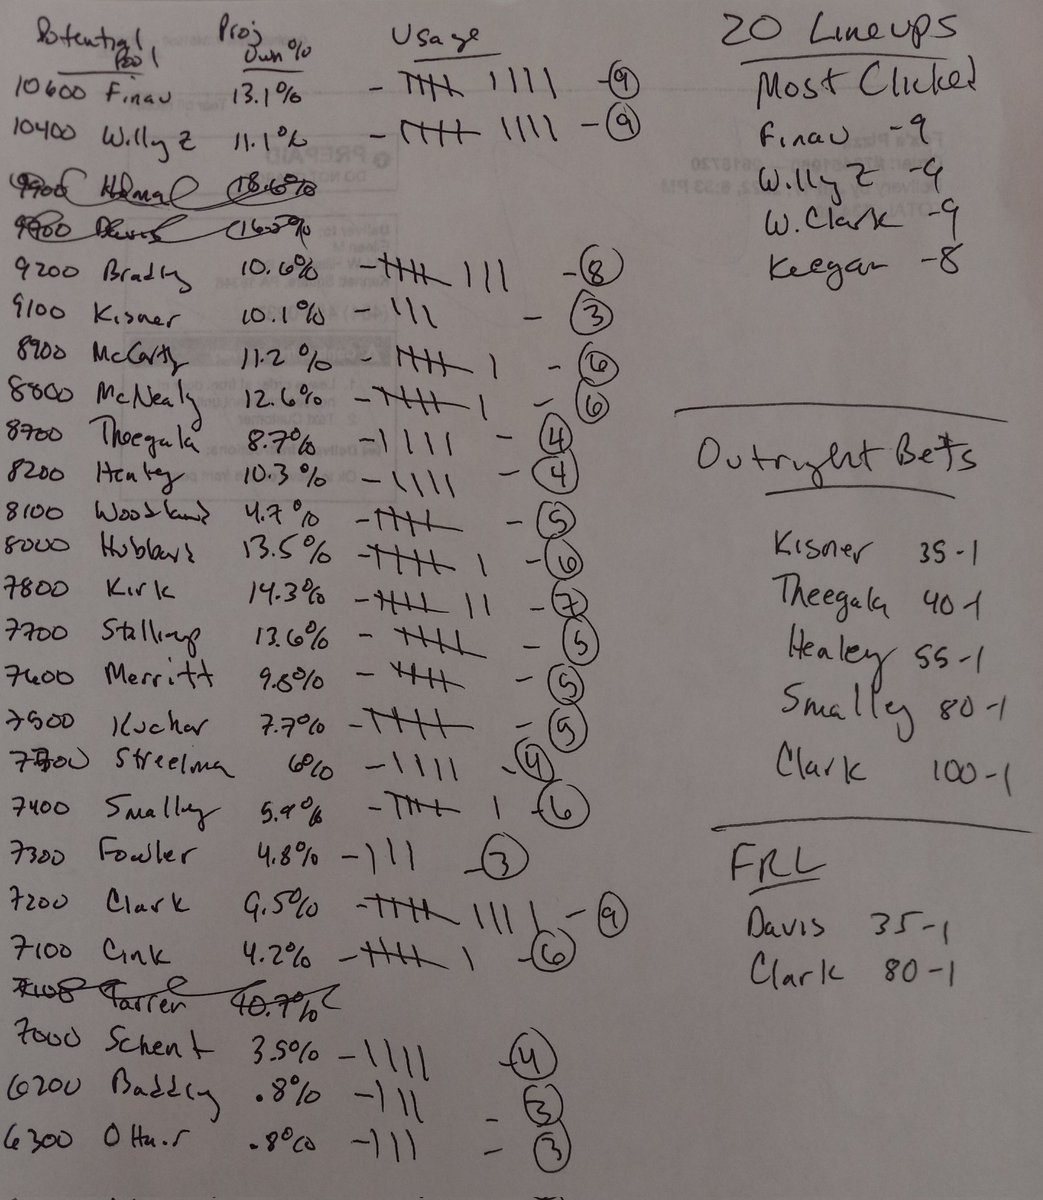 Potential Pool Proj Own% Usage
10600 Finau 13.1% - 9
10400 Willy Z 11.1% - 9
9900 Homa 18.6%
Davis
9200 Bradley 10.6% - 8
9100 Kisner 10.1% - 3
8900 McCarthy 11.2% - 6
8800 McNealy 12.6% - 6
8700 Theegala 8.7% - 4
8200 Healey 10.3% - 4
8100 Woodland 4.7% - 5
8000 Hubbard 13.5% - 6
7800 Kirk 14.3% - 7
7700 Stallings 13.6% - 5
7600 Merritt 9.8% - 5
7500 Kuchar 7.7% - 5
Streelman 6% - 4
7400 Smalley 5.9% - 6
7300 Fowler 4.8% - 3
7200 Clark 9.5% - 9
7100 Cink 4.2% - 6
Tarren 10.7%
7000 Schenk 3.5% - 4
6200 Baddley .8% - 3
6300 O Hair .8% - 3
20 Lineups
Most Clicked
Finau - 9
Willy Z - 9
W. Clark - 9
Keegan - 8
Outright Bets
Kisner 35-1
Theegala 40-1
Healey 55-1
Smalley 80-1
Clark 100-1
FRL
Davis 35-1
Clark 80-1